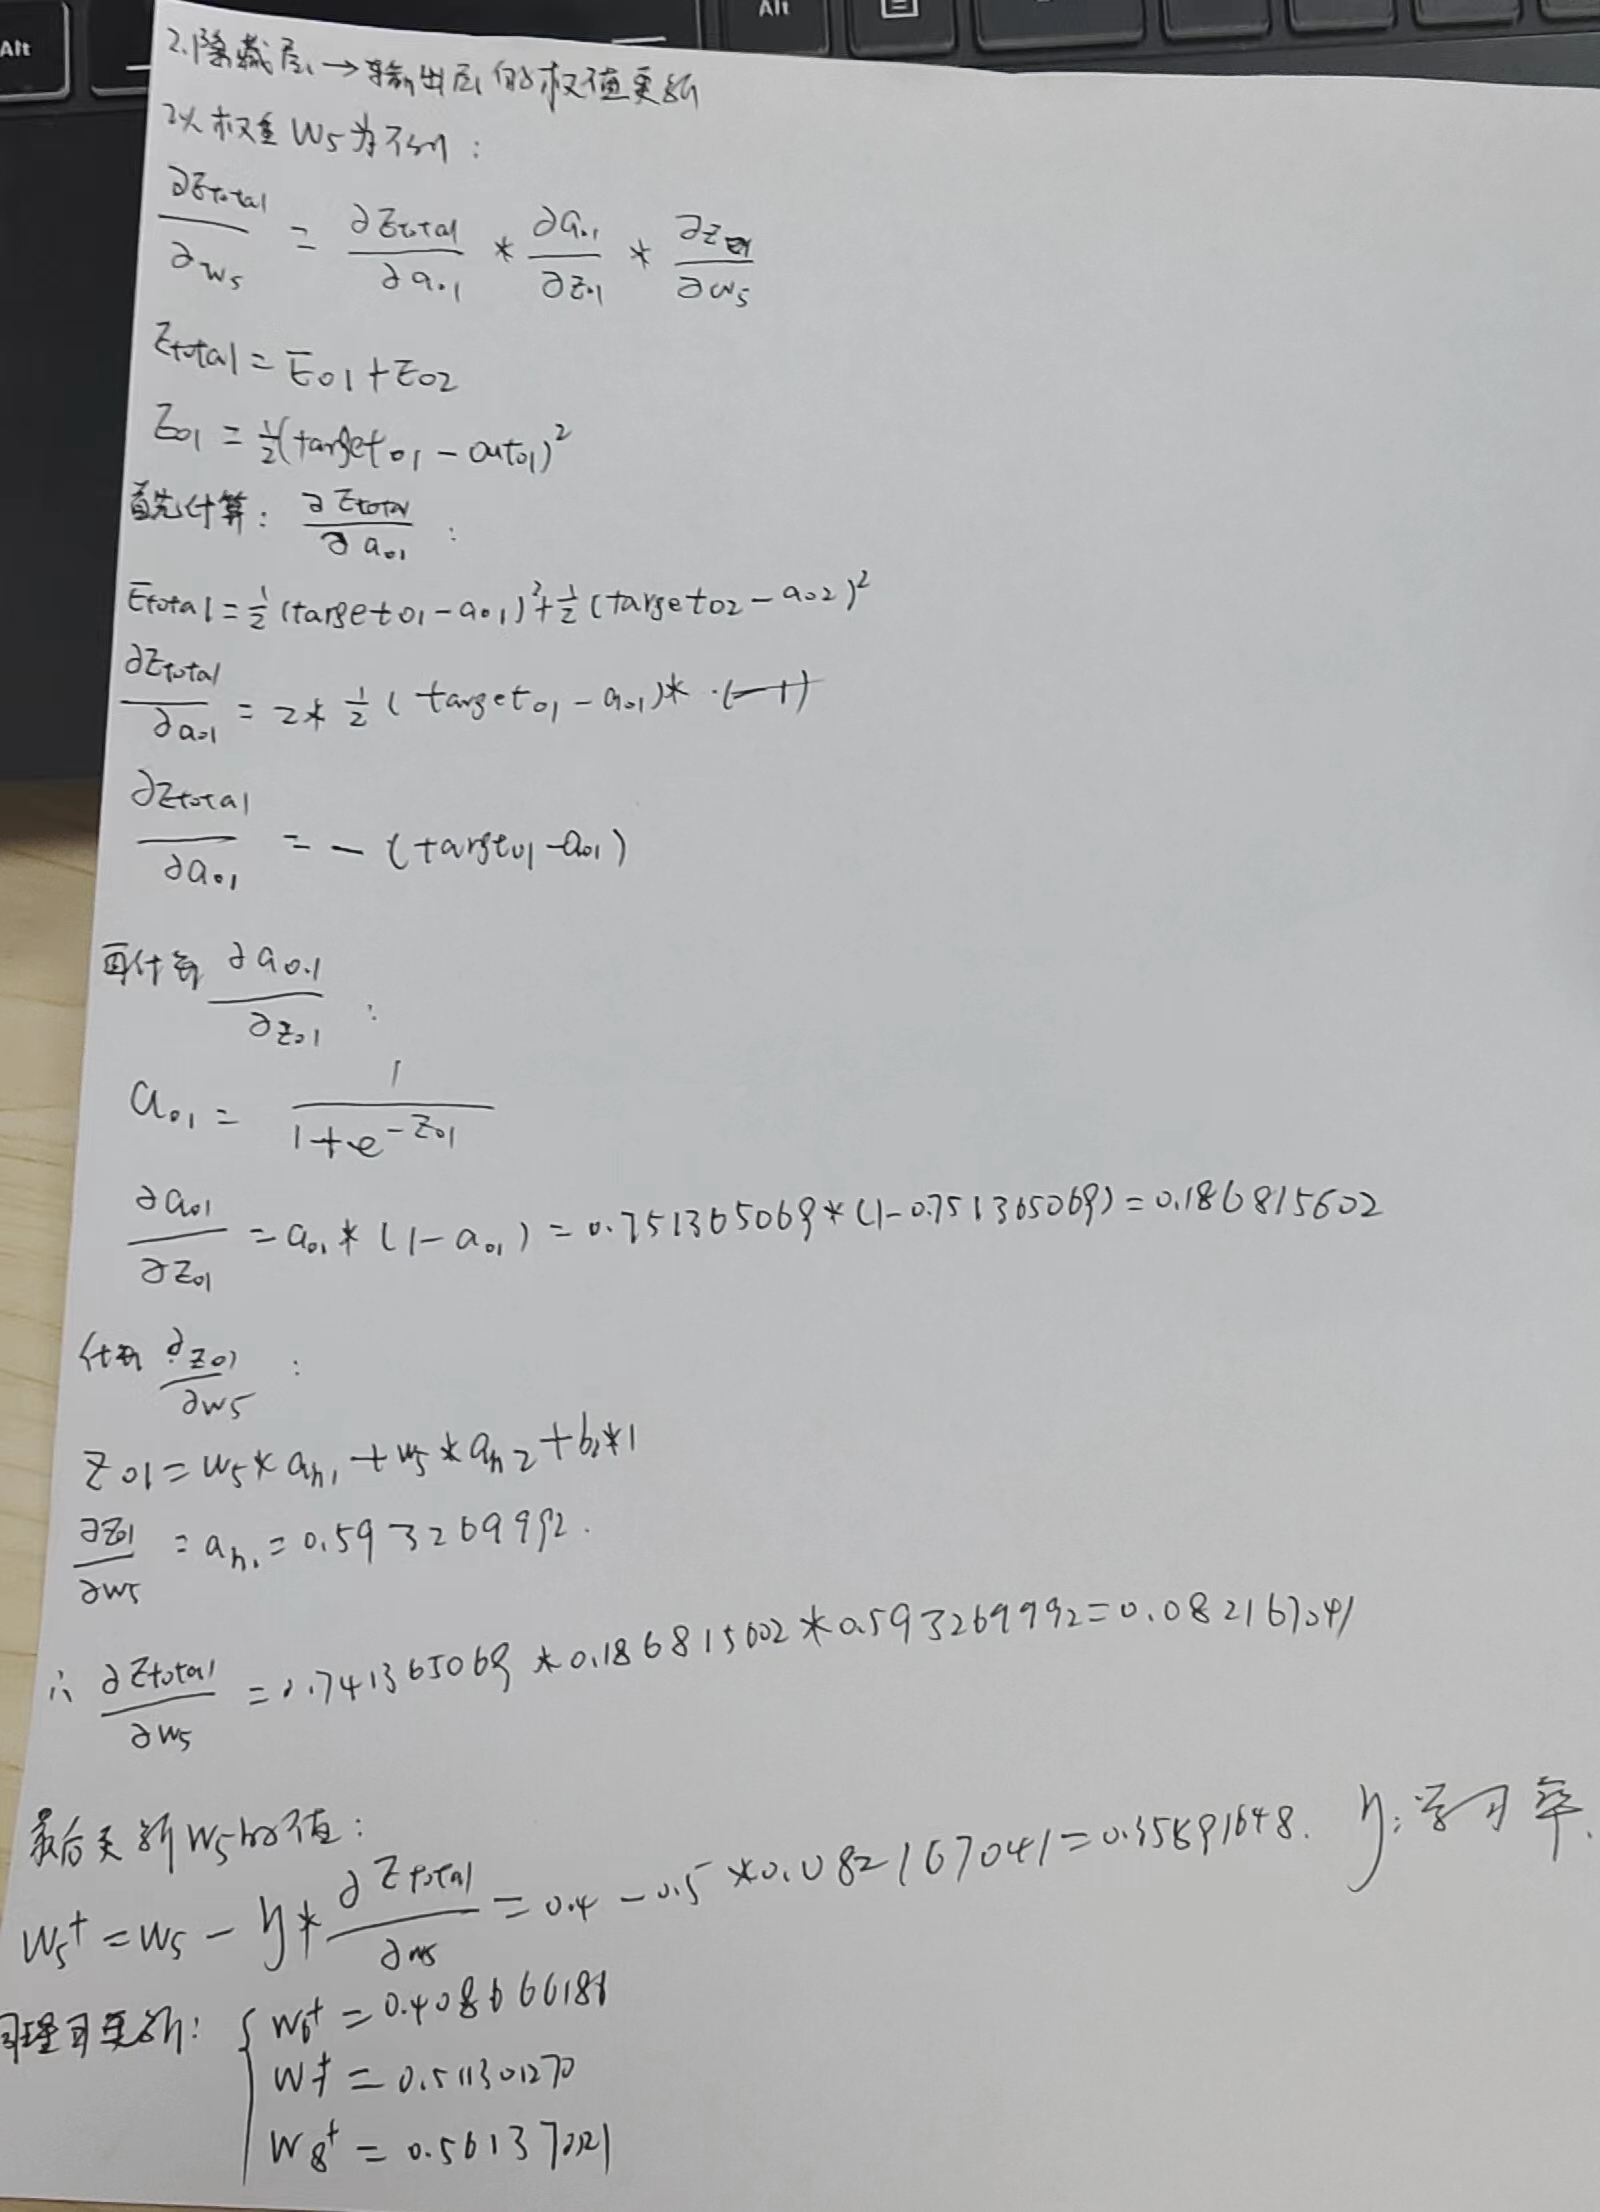 Alt
Alt
2.隐藏层→输出层的权值更新
以权重W5为例:
∂Etotal/∂w5 = ∂Etotal/∂ao1 * ∂ao1/∂zo1 * ∂zo1/∂w5
Etotal = Eo1 + Eo2
Eo1 = ½(targeto1 - outo1)²
首先计算: ∂Etotal/∂ao1 :
Etotal = ½(targeto1 - ao1)² + ½(targeto2 - ao2)²
∂Etotal/∂ao1 = 2 * ½(targeto1 - ao1) * (-1)
∂Etotal/∂ao1 = -(targeto1 - ao1)
再计算 ∂ao1/∂zo1 :
ao1 = 1/(1+e^-zo1)
∂ao1/∂zo1 = ao1 * (1-ao1) = 0.751365069 * (1-0.751365069) = 0.186815602
计算 ∂zo1/∂w5 :
zo1 = w5 * ah1 + w5 * ah2 + b2 * 1
∂zo1/∂w5 = ah1 = 0.593269992.
∴ ∂Etotal/∂w5 = 0.741365069 * 0.186815602 * 0.593269992 = 0.082167041
最后更新W5的值:
W5⁺ = W5 - η * ∂Etotal/∂w5 = 0.4 - 0.5 * 0.082167041 = 0.35891648. η:学习率.
同理可更新: { W6⁺ = 0.408666186
W7⁺ = 0.511301270
W8⁺ = 0.561370121